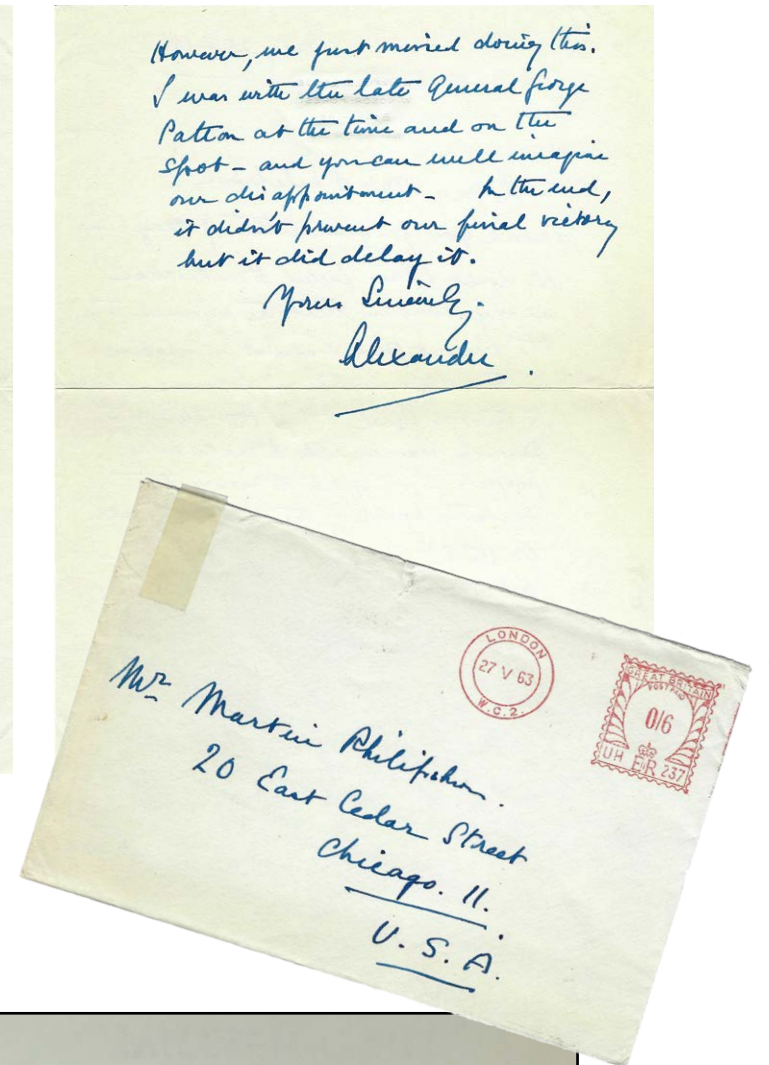 However, we just missed doing this.
I was with the late General George
Patton at the time and on the
spot - and you can well imagine
our disappointment - In the end,
it didn't prevent our final victory
but it did delay it.
Yours Sincerely.
Alexander.
LONDON
27 V 63
W.C.2.
GREAT BRITAIN
POSTAGE
0/6
UH EIIR 237
Mr Martin Philipshon.
20 East Cedar Street
Chicago. 11.
U.S.A.